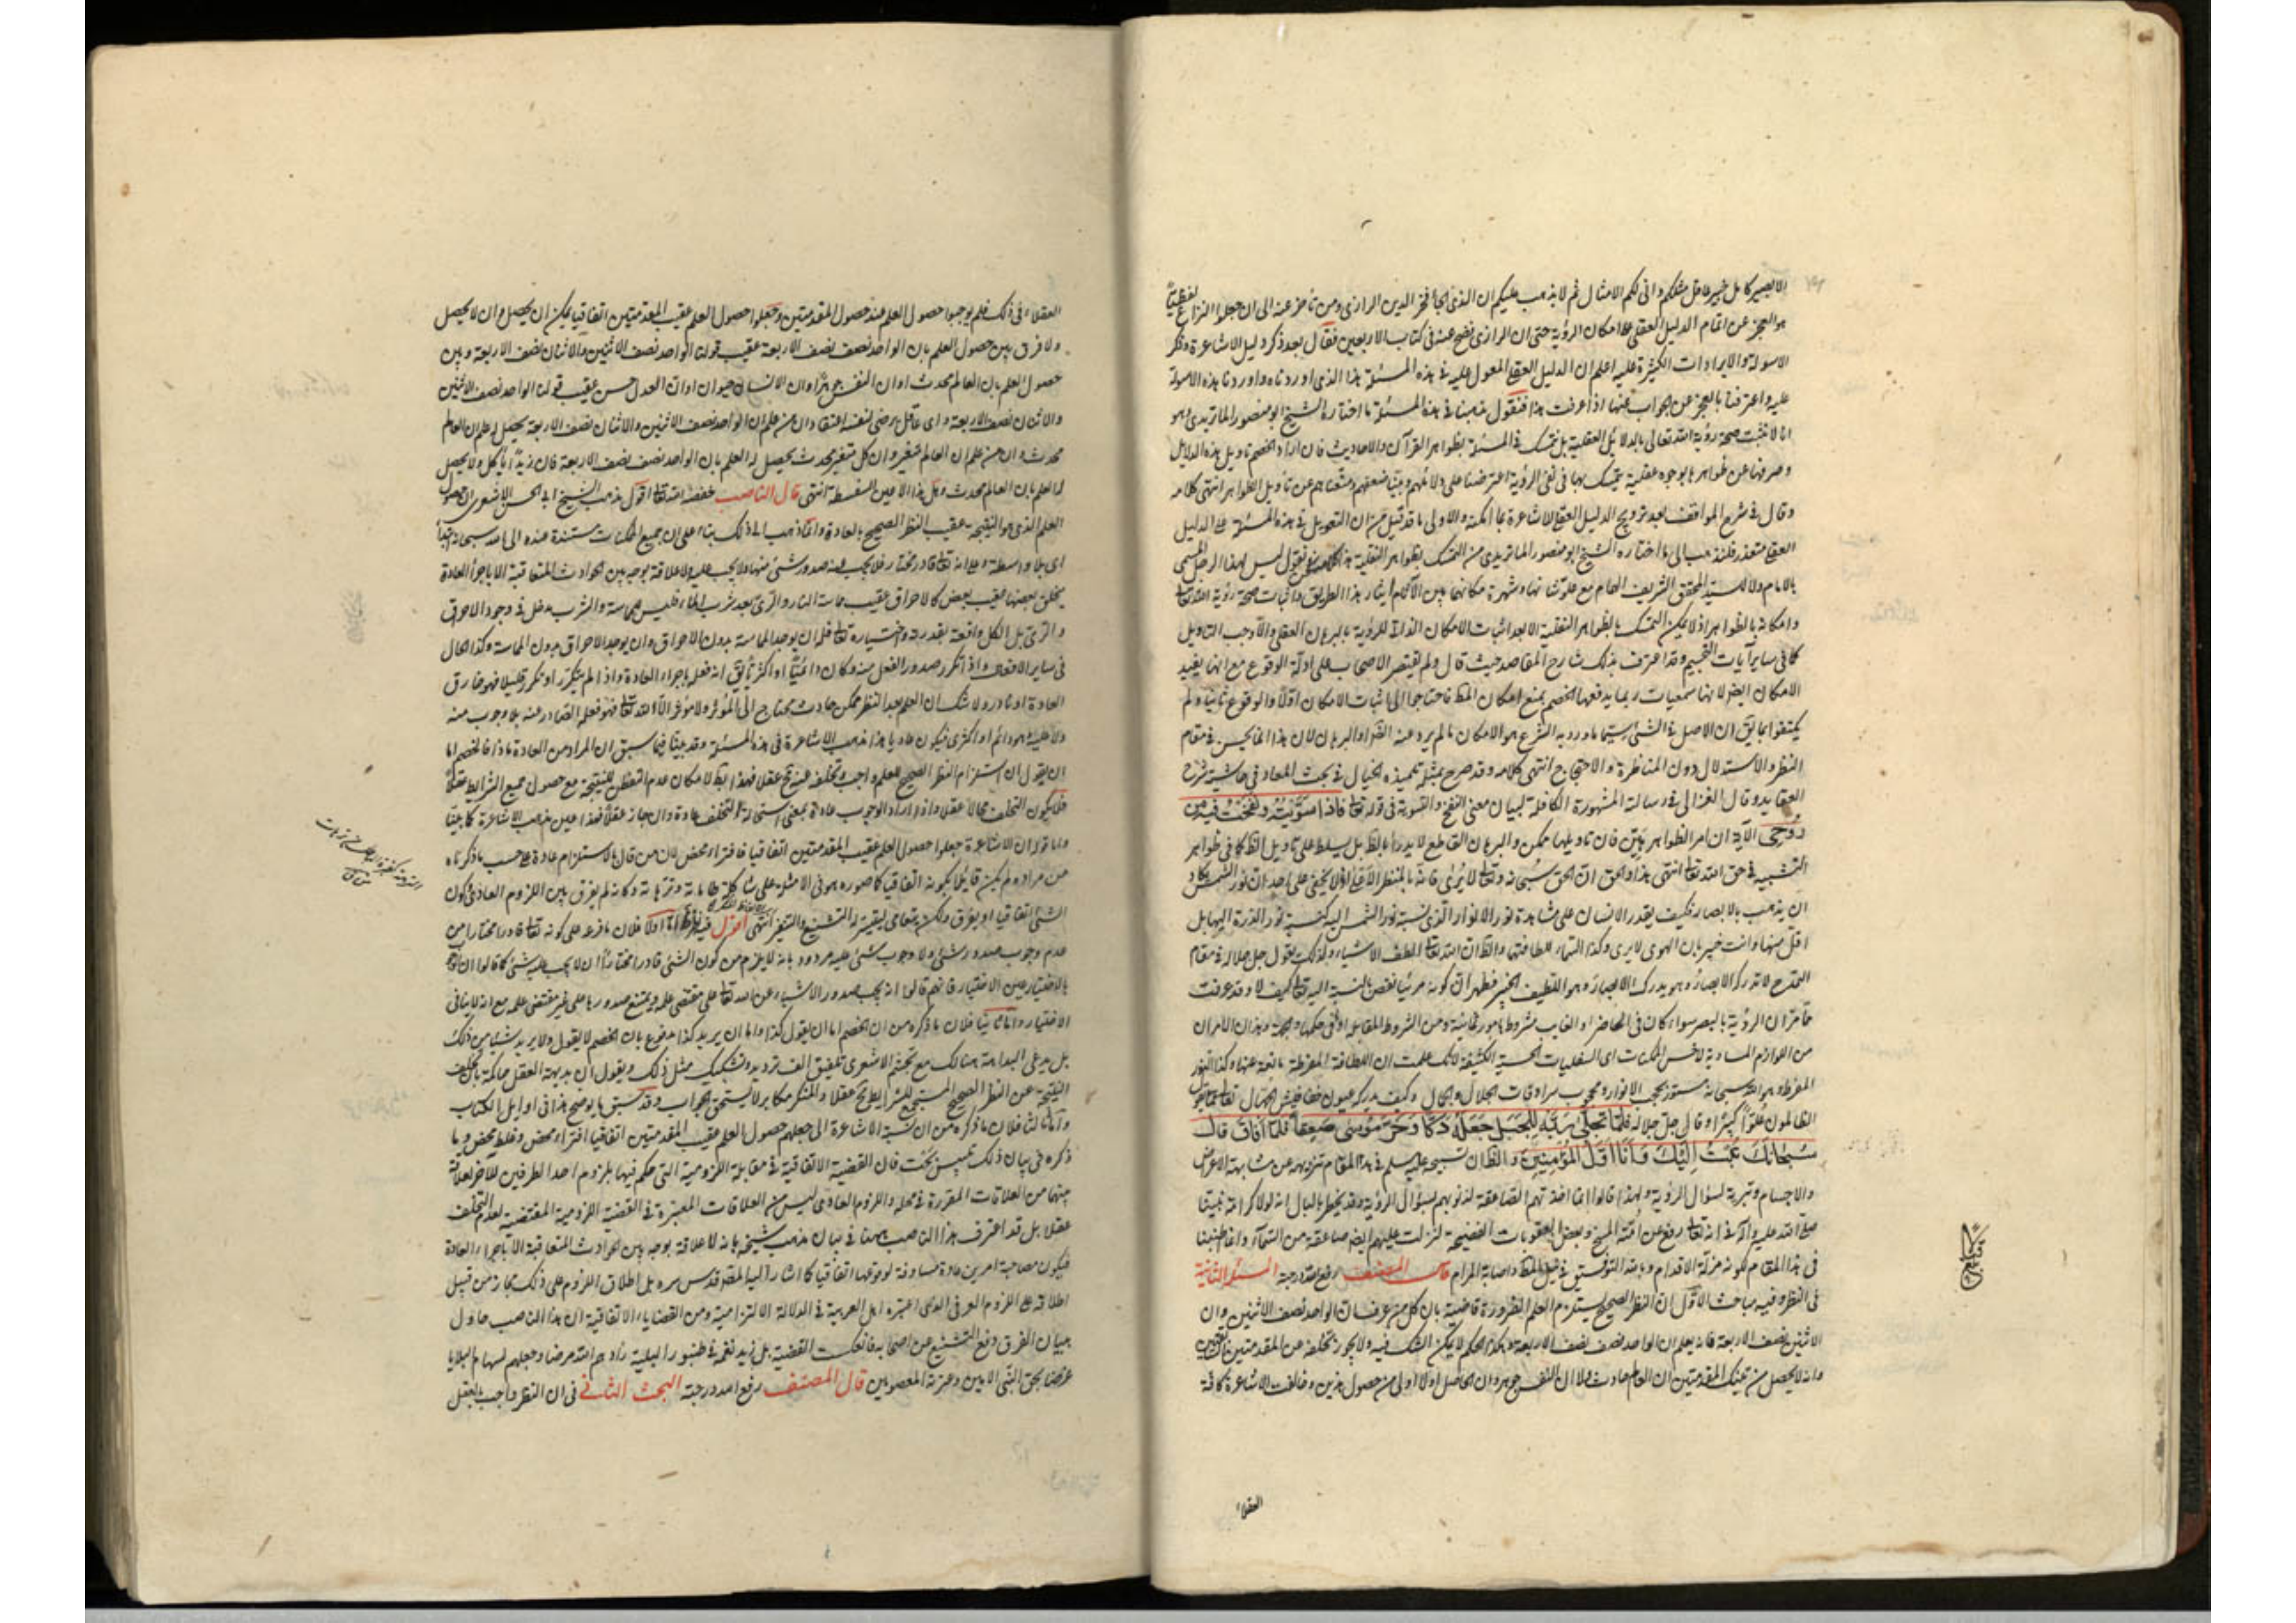 الا بصير كامل خبير عاقل مثلكم وانى لكم الامثال ثم لا يذهب عليكم ان الذى الجأ فخر الدين الرازى ومن تأخر عنه الى ان جعلوا النزاع لفظيًا
هو العجز عن اتمام الدليل العقلى على امكان الرؤية حتى ان الرازى فضح عنه فى كتاب الاربعين فقال بعد ذكر دليل الاشاعرة وذكر
الاسولة والايرادات الكثيرة عليه اعلم ان الدليل العقلى المعول عليه فى هذه المسئلة هذا الذى اوردناه واوردنا هذه الاسولة
عليه واعترفنا بالعجز عن الجواب عنها اذا عرفت هذا فنقول مذهبنا فى هذه المسئلة ما اختاره الشيخ ابو منصور الماتريدى وهو
انا لا نثبت صحة رؤية الله تعالى بالدلائل العقلية بل نتمسك فى المسئلة بظواهر القرآن والاحاديث فان اراد الخصم تاويل هذه الدلايل
وصرفها عن ظواهرها بوجوه عقلية يتمسك بها فى نفى الرؤية اعترضنا على دلائلهم وبينا ضعفهم ومنعناهم عن تأويل الظواهر انتهى كلامه
وقال فى شرح المواقف بعد ترويج الدليل العقلى للاشاعرة بما امكنه والاولى ما قد قيل من ان التعويل فى هذه المسئلة على الدليل
العقلى متعذر فلنذهب الى ما اختاره الشيخ ابو منصور الماتريدى من التمسك بظواهر النقلية هذا كلامه ونحن نقول ليس لهذا الرجل المسمى
بالامام ولا للسيد المحقق الشريف العلام مع علو شانها وشهرة مكانهما بين الاقوام ايثار هذا الطريق واثبات صحة رؤية الله تعا
وامكانه بالظواهر اذ لا يمكن التمسك بالظواهر النقلية الا بعد اثبات الامكان الذاتى للرؤية بالبرهان العقلى والا وجب التاويل
كما فى ساير آيات التجسيم وقد اعترف بذلك شارح المقاصد حيث قال ولم يقتصر الاصحاب على ادلة الوقوع مع انها يفيد
الامكان ايضا لانها سمعيات ربما يدفعها الخصم بمنع امكان المط فاحتاجوا الى اثبات الامكان اولا والوقوع ثانيا ولم
يكتفوا بما يق ان الاصل فى الشئ سيما ما ورد به الشرع هو الامكان ما لم يرد عنه الضرورة او البرهان لان هذا انما يحسن فى مقام
النظر والاستدلال دون المناظرة والاحتجاج انتهى كلامه وقد صرح بمثله تلميذه الخيالى فى بحث المعاد فى حاشية شرح
العقايد وقال الغزالى فى رسالته المشهورة الكافلة لبيان معنى النفخ والتسوية فى قوله تعا فاذا سويته ونفخت فيه من
روحى الآية ان امر الظواهر هين فان تاويلها ممكن والبرهان القاطع لا يدرأ بالظ بل يسلط على تأويل الظ كما فى ظواهر
التشبيه فى حق الله تعا انتهى هذا والحق ان الحق سبحانه وتعا لا يرى فانه بالمنظر الاعلى اذ لا يخفى على احد ان نور الشمس يكاد
ان يذهب بالابصار فكيف يقدر الانسان على مشاهدة نور الانوار الذى نسبة نور الشمس اليه كنسبة نور الذرة اليها بل
اقل منها وانت خبير بان الهوى لا يرى وكذا السماء للطافتها والظ ان الله تعا الطف الاشياء ولذلك يقول جل جلاله فى مقام
التمدح لا تدركه الابصار وهو يدرك الابصار وهو اللطيف الخبير فظهر ان كونه مرئيا نقص بالنسبة اليه تعا كيف لا وقد عرفت
مما مر ان الرؤية بالبصر سواء كان فى الحاضر او الغايب مشروط بامور ثمانية ومن الشروط المقابلة او فى حكمها والجهة وهذان الامران
من اللوازم المساوية لاخس الممكنات اى السفليات الحسية الكثيفة لانك علمت ان اللطافة المفرطة مانعة عنها وكذا النور
المفرط وهو الله سبحانه مستور بحجب الانوار ومحجوب بسرادقات الجلال والجمال وكيف يدركه عيون خفافيش الجهال تعا عما يقول
الظالمون علوا كبيرا وقال جل جلاله فلما تجلى ربه للجبل جعله دكا وخر موسى صعقا فلما افاق قال
سبحانك تبت اليك وانا اول المؤمنين والظ ان تسبيحه عليه سلم فى هذا المقام تنزيهه عن مشابهة الاعراض
والاجسام وتبرية لسؤال الرؤية ولهذا قالوا انما اخذتهم الصاعقة لذنوبهم بسؤال الرؤية وقد يخطر بالبال انه لولا كرامة نبينا
صلى الله عليه وآله فى انه تعا رفع عن امته المسخ وبعض العقوبات الفضيحة لنزلت عليهم ايضا صاعقة من السماء وانما اطنبنا
فى هذا المقام لكونه مزلة الاقدام وبالله التوفيق فى نيل المط واصابة المرام قال المصنف رفع الله درجته المسئلة الثانية
فى النظر وفيه مباحث الاول ان النظر الصحيح يستلزم العلم الضرورة قاضية بان كل من عرف ان الواحد نصف الاثنين وان
الاثنين نصف الاربعة فانه يعلم ان الواحد نصف نصف الاربعة وهذا الحكم لا يمكن الشك فيه ولا يجوز تخلفه عن المقدمتين السابقتين
وانه لا يحصل من تينك المقدمتين ان العالم حادث ولا ان النفس جوهر وان الحاصل اولا اولى من حصول هذين وخالفت الاشاعرة كافة
العقلاء
قبلى
العقلاء فى ذلك فلم يوجبوا حصول العلم عند حصول المقدمتين وجعلوا حصول العلم عقيب المقدمتين اتفاقيا يمكن ان يحصل وان لا يحصل
ولا فرق بين حصول العلم بان الواحد نصف نصف الاربعة عقيب قولنا الواحد نصف الاثنين والاثنان نصف الاربعة وبين
حصول العلم بان العالم محدث او ان النفس جوهر او ان الانسان حيوان او ان العدل حسن عقيب قولنا الواحد نصف الاثنين
والاثنان نصف الاربعة واى عاقل يرضى لنفسه اعتقاد ان من علم ان الواحد نصف الاثنين والاثنان نصف الاربعة يحصل له علم ان العالم
محدث وان من علم ان العالم متغير وان كل متغير محدث يحصل له العلم بان الواحد نصف نصف الاربعة فان زيدا يأكل ولا يحصل
له العلم بان العالم محدث وهل هذا الا عين السفسطة انتهى قال الناصب خفضه الله تعا اقول مذهب الشيخ ابى الحسن الاشعرى ان حصول
العلم الذى هو النتيجة عقيب النظر الصحيح بالعادة وانما ذهب الى ذلك بناء على ان جميع الممكنات مستندة عنده الى الله سبحانه ابتداء
اى بلا واسطة وعلى انه تعا قادر مختار فلا يجب عنه صدور شئ منها ولا يجب عليه ولا علاقة بوجه بين الحوادث المتعاقبة الا باجراء العادة
بخلق بعضها عقيب بعض كالاحراق عقيب مماسة النار والرى بعد شرب الماء فليس للمماسة والشرب مدخل فى وجود الاحراق
والرى بل الكل واقعة بقدرته واختياره تعا فله ان يوجد المماسة بدون الاحراق وان يوجد الاحراق بدون المماسة وكذا الحال
فى ساير الافعال واذا تكرر صدور الفعل منه وكان دائميا او اكثريا يق انه فعله باجراء العادة واذا لم يتكرر او تكرر قليلا فهو خارق
العادة او نادر ولا شك ان العلم بعد النظر ممكن حادث محتاج الى المؤثر ولا مؤثر الا الله تعا فهو فعله الصادر عنه بلا وجوب منه
ولا عليه وهو دائم او اكثرى فيكون عاديا هذا مذهب الاشاعرة فى هذه المسئلة وقد بينا فيما سبق ان المراد من العادة ماذا فالخصم اما
ان يقول ان استلزام النظر الصحيح للعلم واجب وتخلفه عنه محال عقلا فهذا باطل لامكان عدم التفطن للنتيجة مع حصول جميع الشرايط عقلا
فلا يكون التخلف محالا عقلا وان اراد الوجوب عادة بمعنى استحالة التخلف عادة وان جاز عقلا فهذا عين مذهب الاشاعرة كما بينا
واما قوله ان الاشاعرة جعلوا حصول العلم عقيب المقدمتين اتفاقيا فافتراء محض لان من قال بالاستلزام عادة على حسب ما ذكرناه
من مراده لم يكن قائلا بكونه اتفاقيا كما صوره هو فى الامثلة على شاكلة طاماته وترهاته وكانه لم يفرق بين اللزوم العادى وكون
الشئ اتفاقيا او يفرق ولكن يتعامى ليتيسر له التشنيع والتنفير انتهى اقول فيه نظر اما اولا فلان ما فرعه على كونه تعا قادرا مختارا من
عدم وجوب صدور شئ ولا وجوب شئ عليه مردود بانه لا يلزم من كون الشئ قادرا مختارا ان لا يجب عليه شئ كما قالوا ان الوجوب
بالاختيار عين الاختيار فانهم قالوا انه يجب صدور الاشياء عن الله تعا على مقتضى علمه ويمتنع صدورها على غير مقتضى علمه مع انه لا ينافى
الاختيار واما ثانيا فلان ما ذكره من ان الخصم اما ان يقول كذا واما ان يريد كذا مدفوع بان الخصم لا يقول ولا يريد شيئا من ذلك
بل يدعى البداهة هنالك مع تجشم الاشعرى تلفيق الف ترديد وتشكيك مثل ذلك ويقول ان بديهة العقل حاكمة بان تخلف
النتيجة عن النظر الصحيح المستجمع للشرايط مح عقلا والمنكر مكابر لا يستحق الجواب وقد سبق ما يوضح هذا فى اوايل الكتاب
واما ثالثا فلان ما ذكره من ان نسبة الاشاعرة الى جعلهم حصول العلم عقيب المقدمتين اتفاقيا افتراء محض وغلط محض وما
ذكره فى بيان ذلك تلبيس بحت فان القضية الاتفاقية فى مقابلة اللزومية التى حكم فيها بلزوم احد الطرفين للآخر لعلاقة
بينهما من العلاقات المقررة فى محله واللزوم العادى ليس من العلاقات المعتبرة فى القضية اللزومية المقتضية لعدم التخلف
عقلا بل قد اعترف هذا الناصب ههنا فى بيان مذهب شيخه بانه لا علاقة بوجه بين الحوادث المتعاقبة الا باجراء العادة
فيكون مصاحبة امرين عادة مساوقة لوقوعها اتفاقيا كما اشار اليه المصنف قدس سره بل اطلاق اللزوم على ذلك مجازا من قبيل
اطلاقه على اللزوم العرفى الذى اعتبره اهل العربية فى الدلالة الالتزامية ومن القضاياء الاتفاقية ان هذا الناصب حاول
ببيان الفرق دفع التشنيع عن اصحابه فانعكست القضية بل زيد نغمة فى طنبور البلية زادهم الله مرضا وجعلهم لسهام البلايا
غرضا بحق النبى الامين وعترته المعصومين قال المصنف رفع الله درجته البحث الثانى فى ان النظر واجب بالعقل